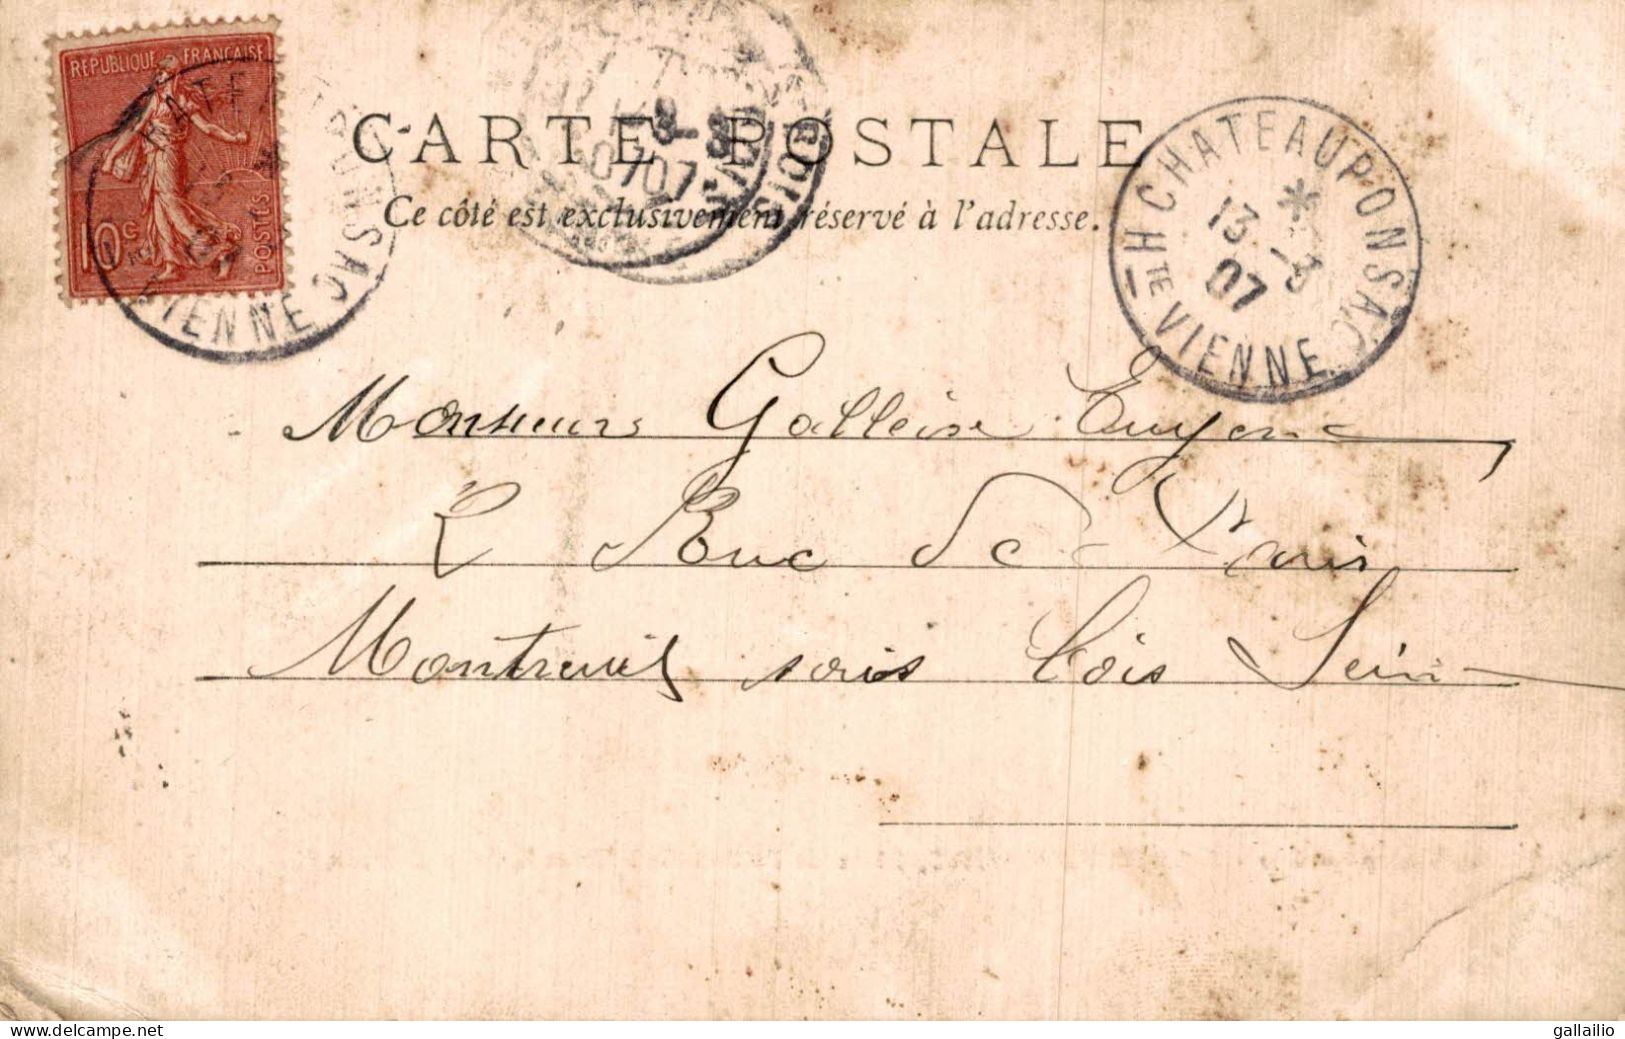 REPUBLIQUE FRANÇAISE
10c
POSTES
CARTE POSTALE
Ce côté est exclusivement réservé à l'adresse.
CHATEAUPONSAC
*
13 -3
07
HTE VIENNE
Monsieur Galleise Eugene
2 Rue de Paris
Montreuil sous bois Sein
delcampe.net
gallailio